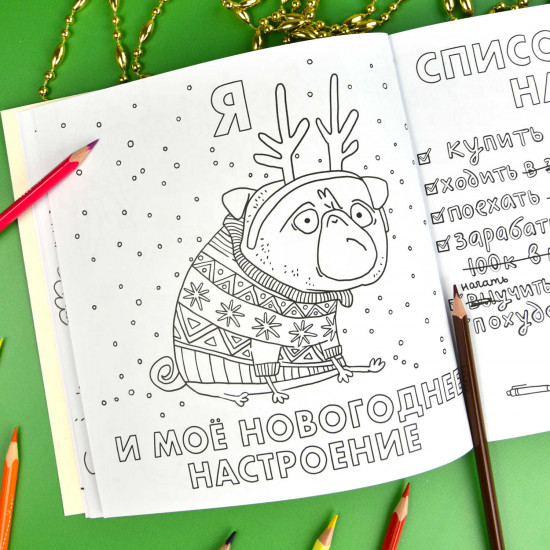 Я
И МОЁ НОВОГОДНЕЕ
НАСТРОЕНИЕ
КУПИТЬ
ХОДИТЬ В З
ПОЕХАТЬ
ЗАРАБАТ
100К В
начать
ВЫУЧИТЬ
ПОХУДЕ